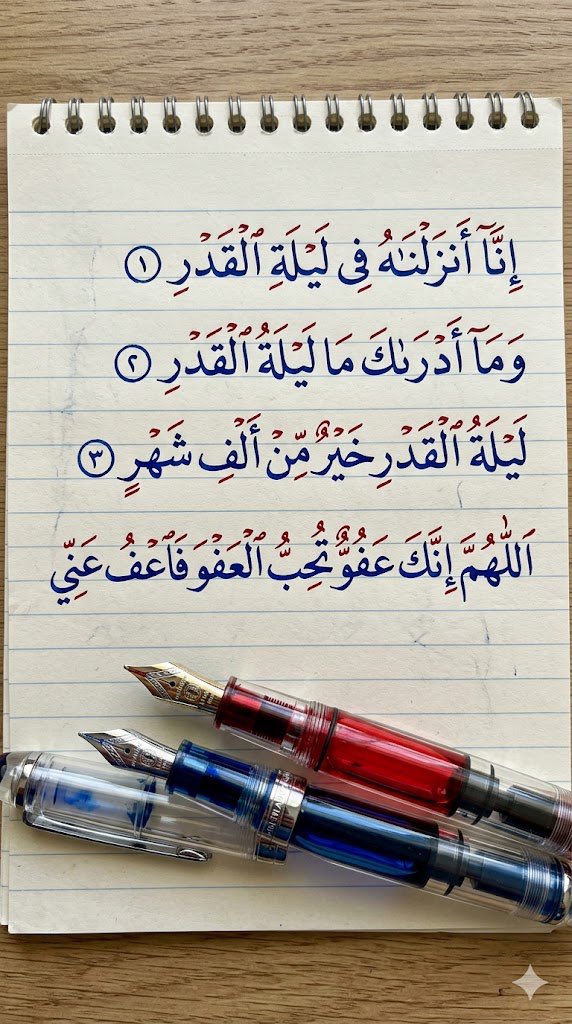 إِنَّآ أَنزَلْنَٰهُ فِى لَيْلَةِ ٱلْقَدْرِ ١
وَمَآ أَدْرَىٰكَ مَا لَيْلَةُ ٱلْقَدْرِ ٢
لَيْلَةُ ٱلْقَدْرِ خَيْرٌ مِّنْ أَلْفِ شَهْرٍ ٣
اَللّٰهُمَّ إِنَّكَ عَفُوٌّ تُحِبُّ ٱلْعَفْوَ فَٱعْفُ عَنِّي